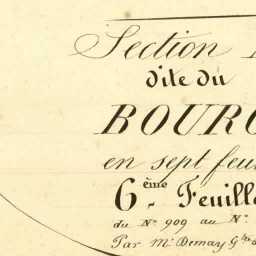 Section
dite du
BOURG
en sept feui
6ème Feuille
du Nº 909 au Nº
Par Mr Demay G